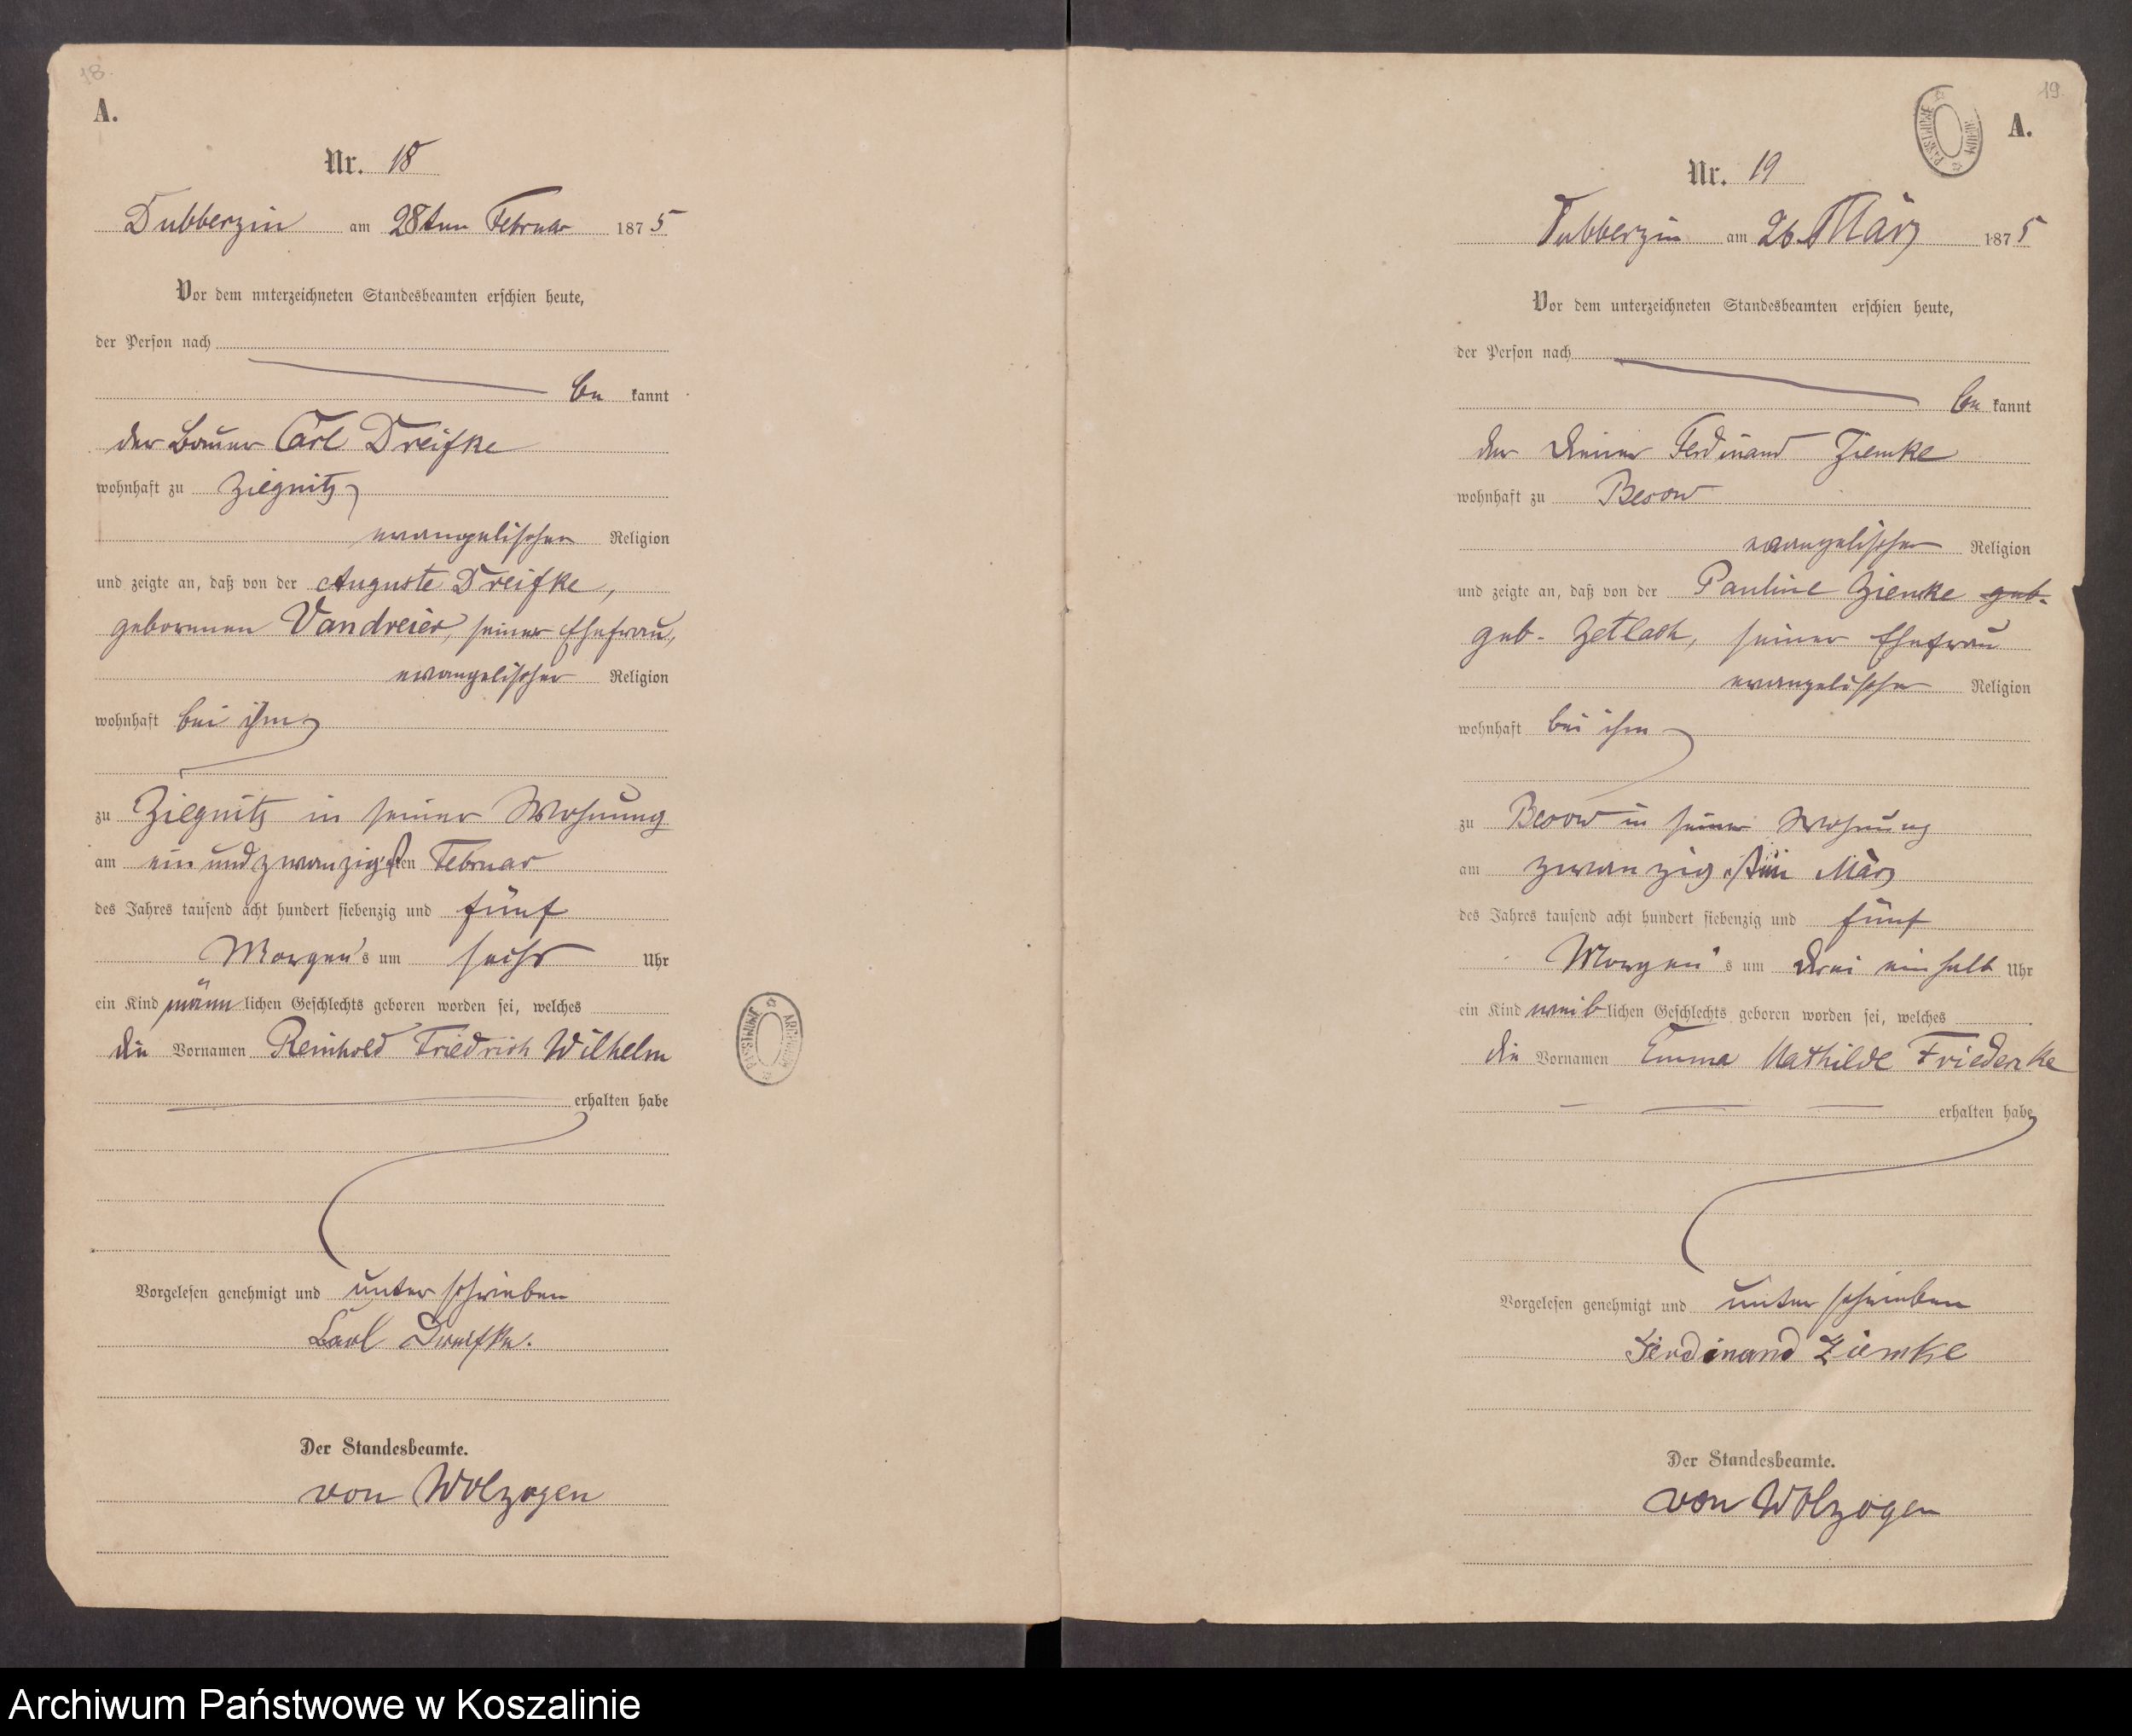 18.
A.
Nr. 18
Dubberzin am 28ten Februar 1875
Vor dem unterzeichneten Standesbeamten erschien heute,
der Person nach
be kannt
der Bauer Carl Dreifke
wohnhaft zu Ziegnitz
evangelischer Religion
und zeigte an, daß von der Auguste Dreifke,
geborenen Vandreier, seiner Ehefrau,
evangelischer Religion
wohnhaft bei ihm
zu Ziegnitz in seiner Wohnung
am ein und zwanzigsten Februar
des Jahres tausend acht hundert siebenzig und fünf
Morgen's um sechs Uhr
ein Kind männlichen Geschlechts geboren worden sei, welches
die Vornamen Reinhold Friedrich Wilhelm
erhalten habe
Vorgelesen genehmigt und unterschrieben
Carl Dreifke.
Der Standesbeamte.
von Wolzogen
ARCHIWUM PAŃSTWOWE
19.
A.
ARCHIWUM PAŃSTWOWE
Nr. 19
Dubberzin am 26. März 1875
Vor dem unterzeichneten Standesbeamten erschien heute,
der Person nach
be kannt
der Diener Ferdinand Ziemke
wohnhaft zu Besow
evangelischer Religion
und zeigte an, daß von der Pauline Ziemke geb.
geb. Zetlach, seiner Ehefrau
evangelischer Religion
wohnhaft bei ihm
zu Besow in seiner Wohnung
am zwanzigsten März
des Jahres tausend acht hundert siebenzig und fünf
Morgen's um drei einhalb Uhr
ein Kind weiblichen Geschlechts geboren worden sei, welches
die Vornamen Emma Mathilde Friederke
erhalten habe
Vorgelesen genehmigt und unterschrieben
Ferdinand Ziemke
Der Standesbeamte.
von Wolzogen
Archiwum Państwowe w Koszalinie